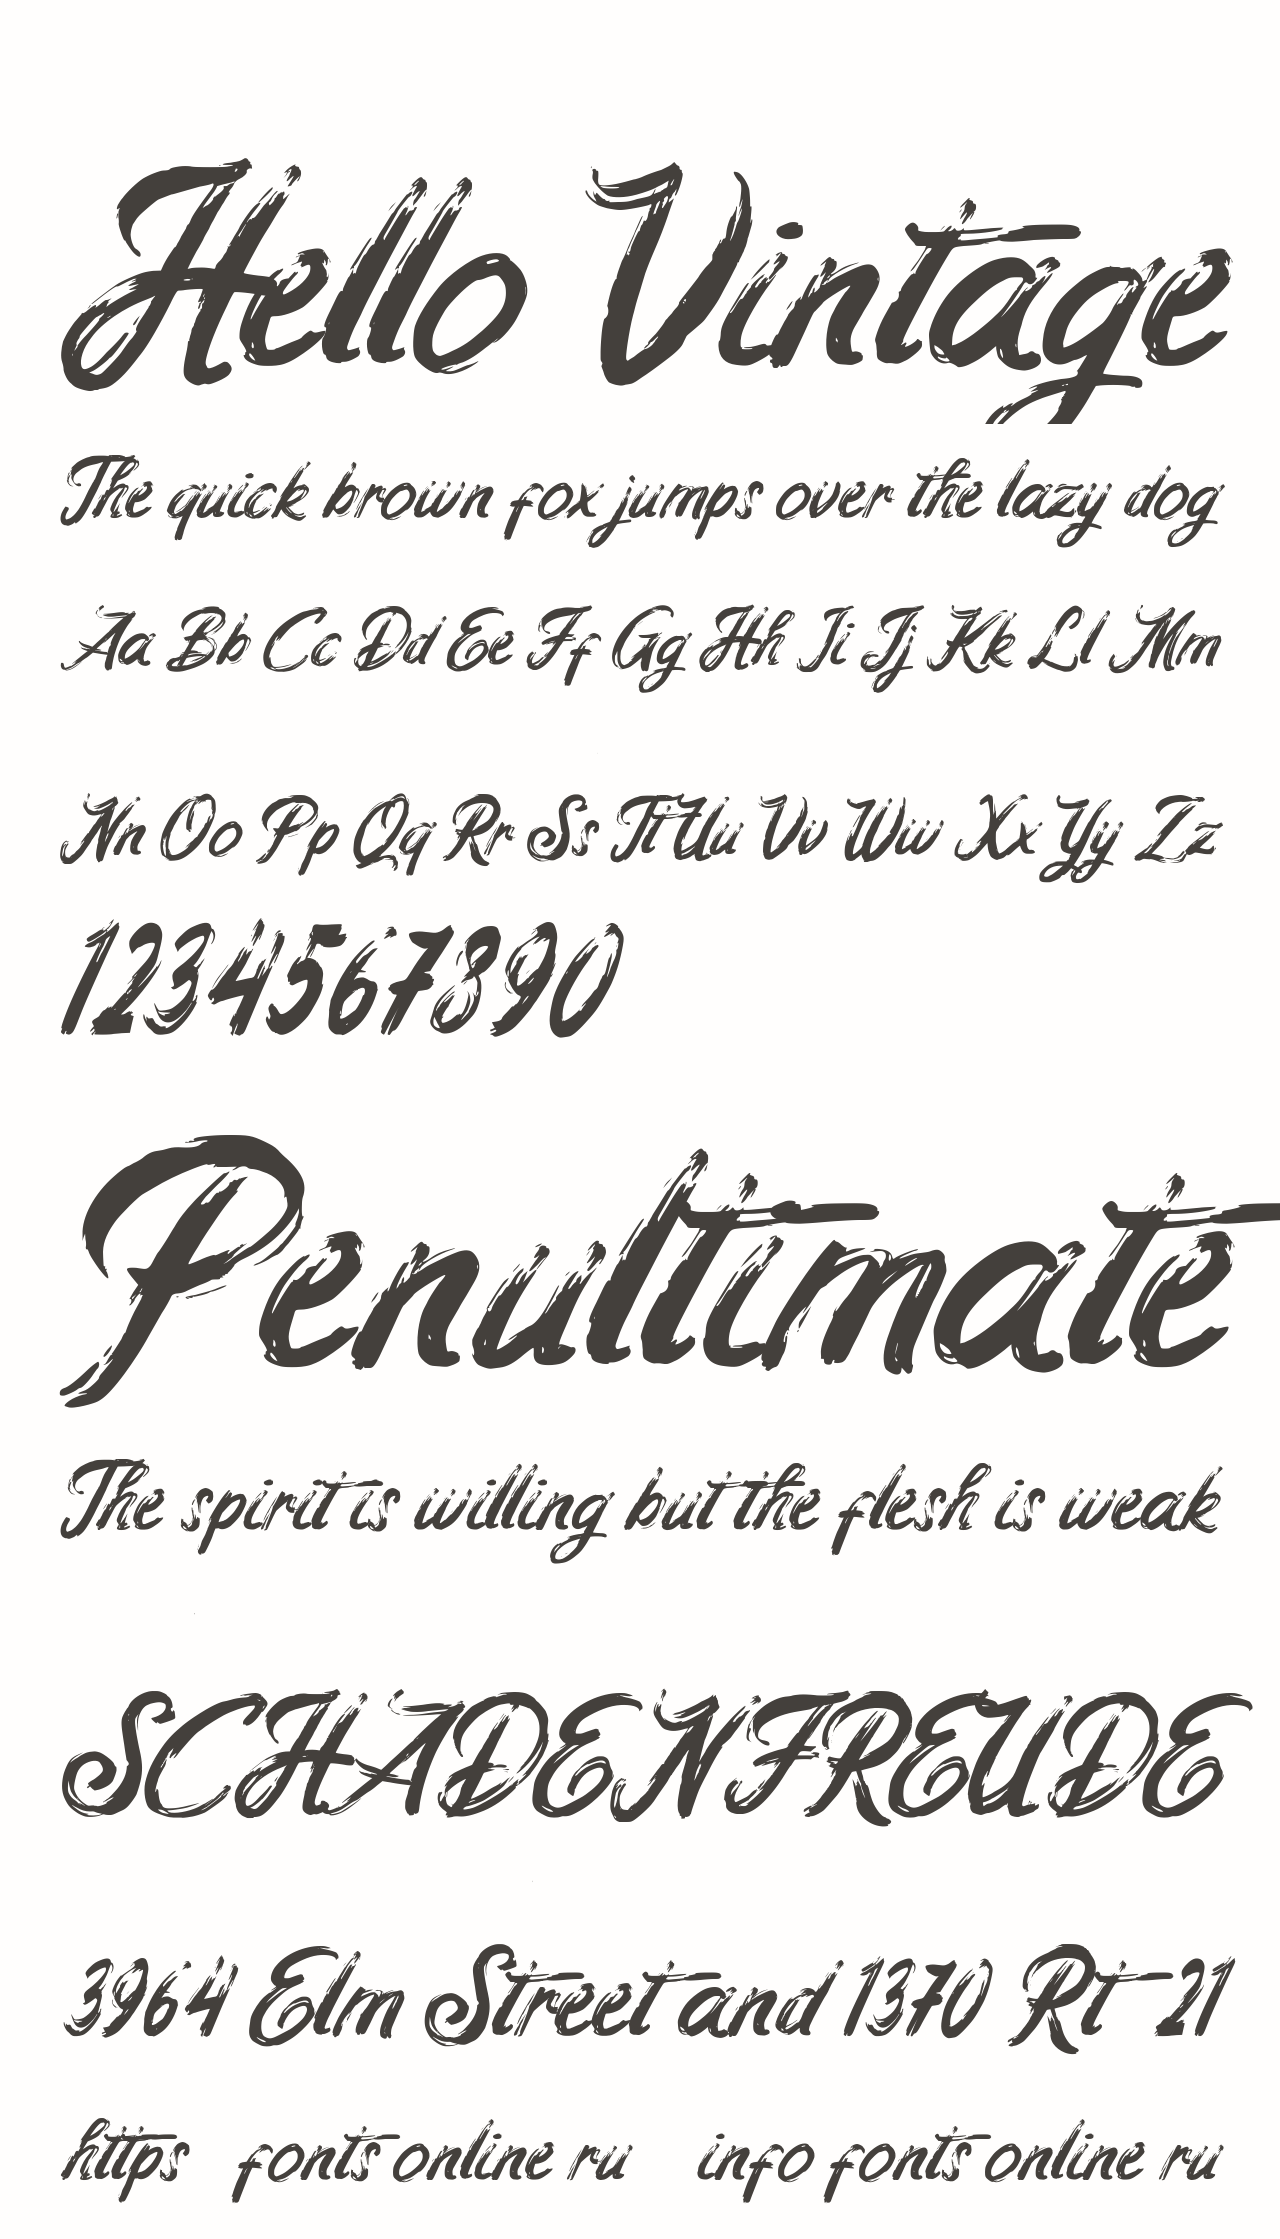 Hello Vintage
The quick brown fox jumps over the lazy dog
Aa Bb Cc Dd Ee Ff Gg Hh Ii Jj Kk Ll Mm
Nn Oo Pp Qq Rr Ss Tt Uu Vv Ww Xx Yy Zz
1234567890
Penultimate
The spirit is willing but the flesh is weak
SCHADENFREUDE
3964 Elm Street and 1370 Rt 21
https fonts online ru info fonts online ru